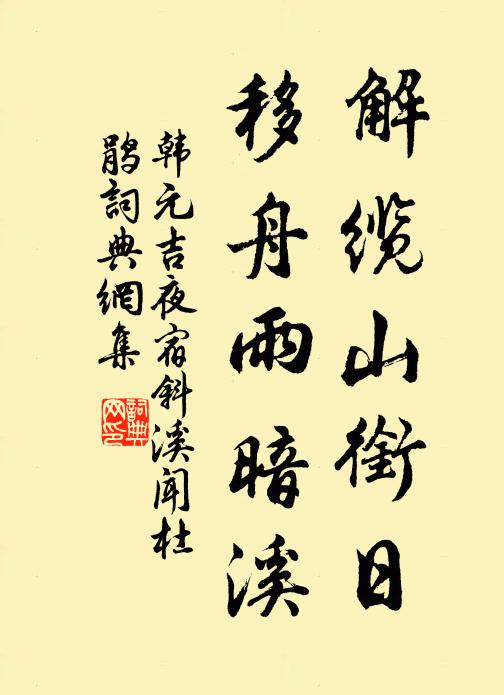 解缆山衔日
移舟雨暗溪
韩元吉夜宿斜溪闻杜
鹃词典網集
詞典
网印